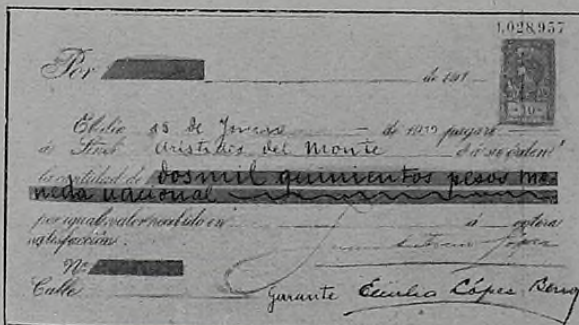 1.028,957
Por de 191
10
El dia 15 de de 1922 pagaré
á Señor Aristides del Monte ó á su orden
la cantidad de dosmil quinientos pesos mo
neda nacional
por igual valor recibido en á entera
satisfacción. López
Nº
Calle garante Emilio López